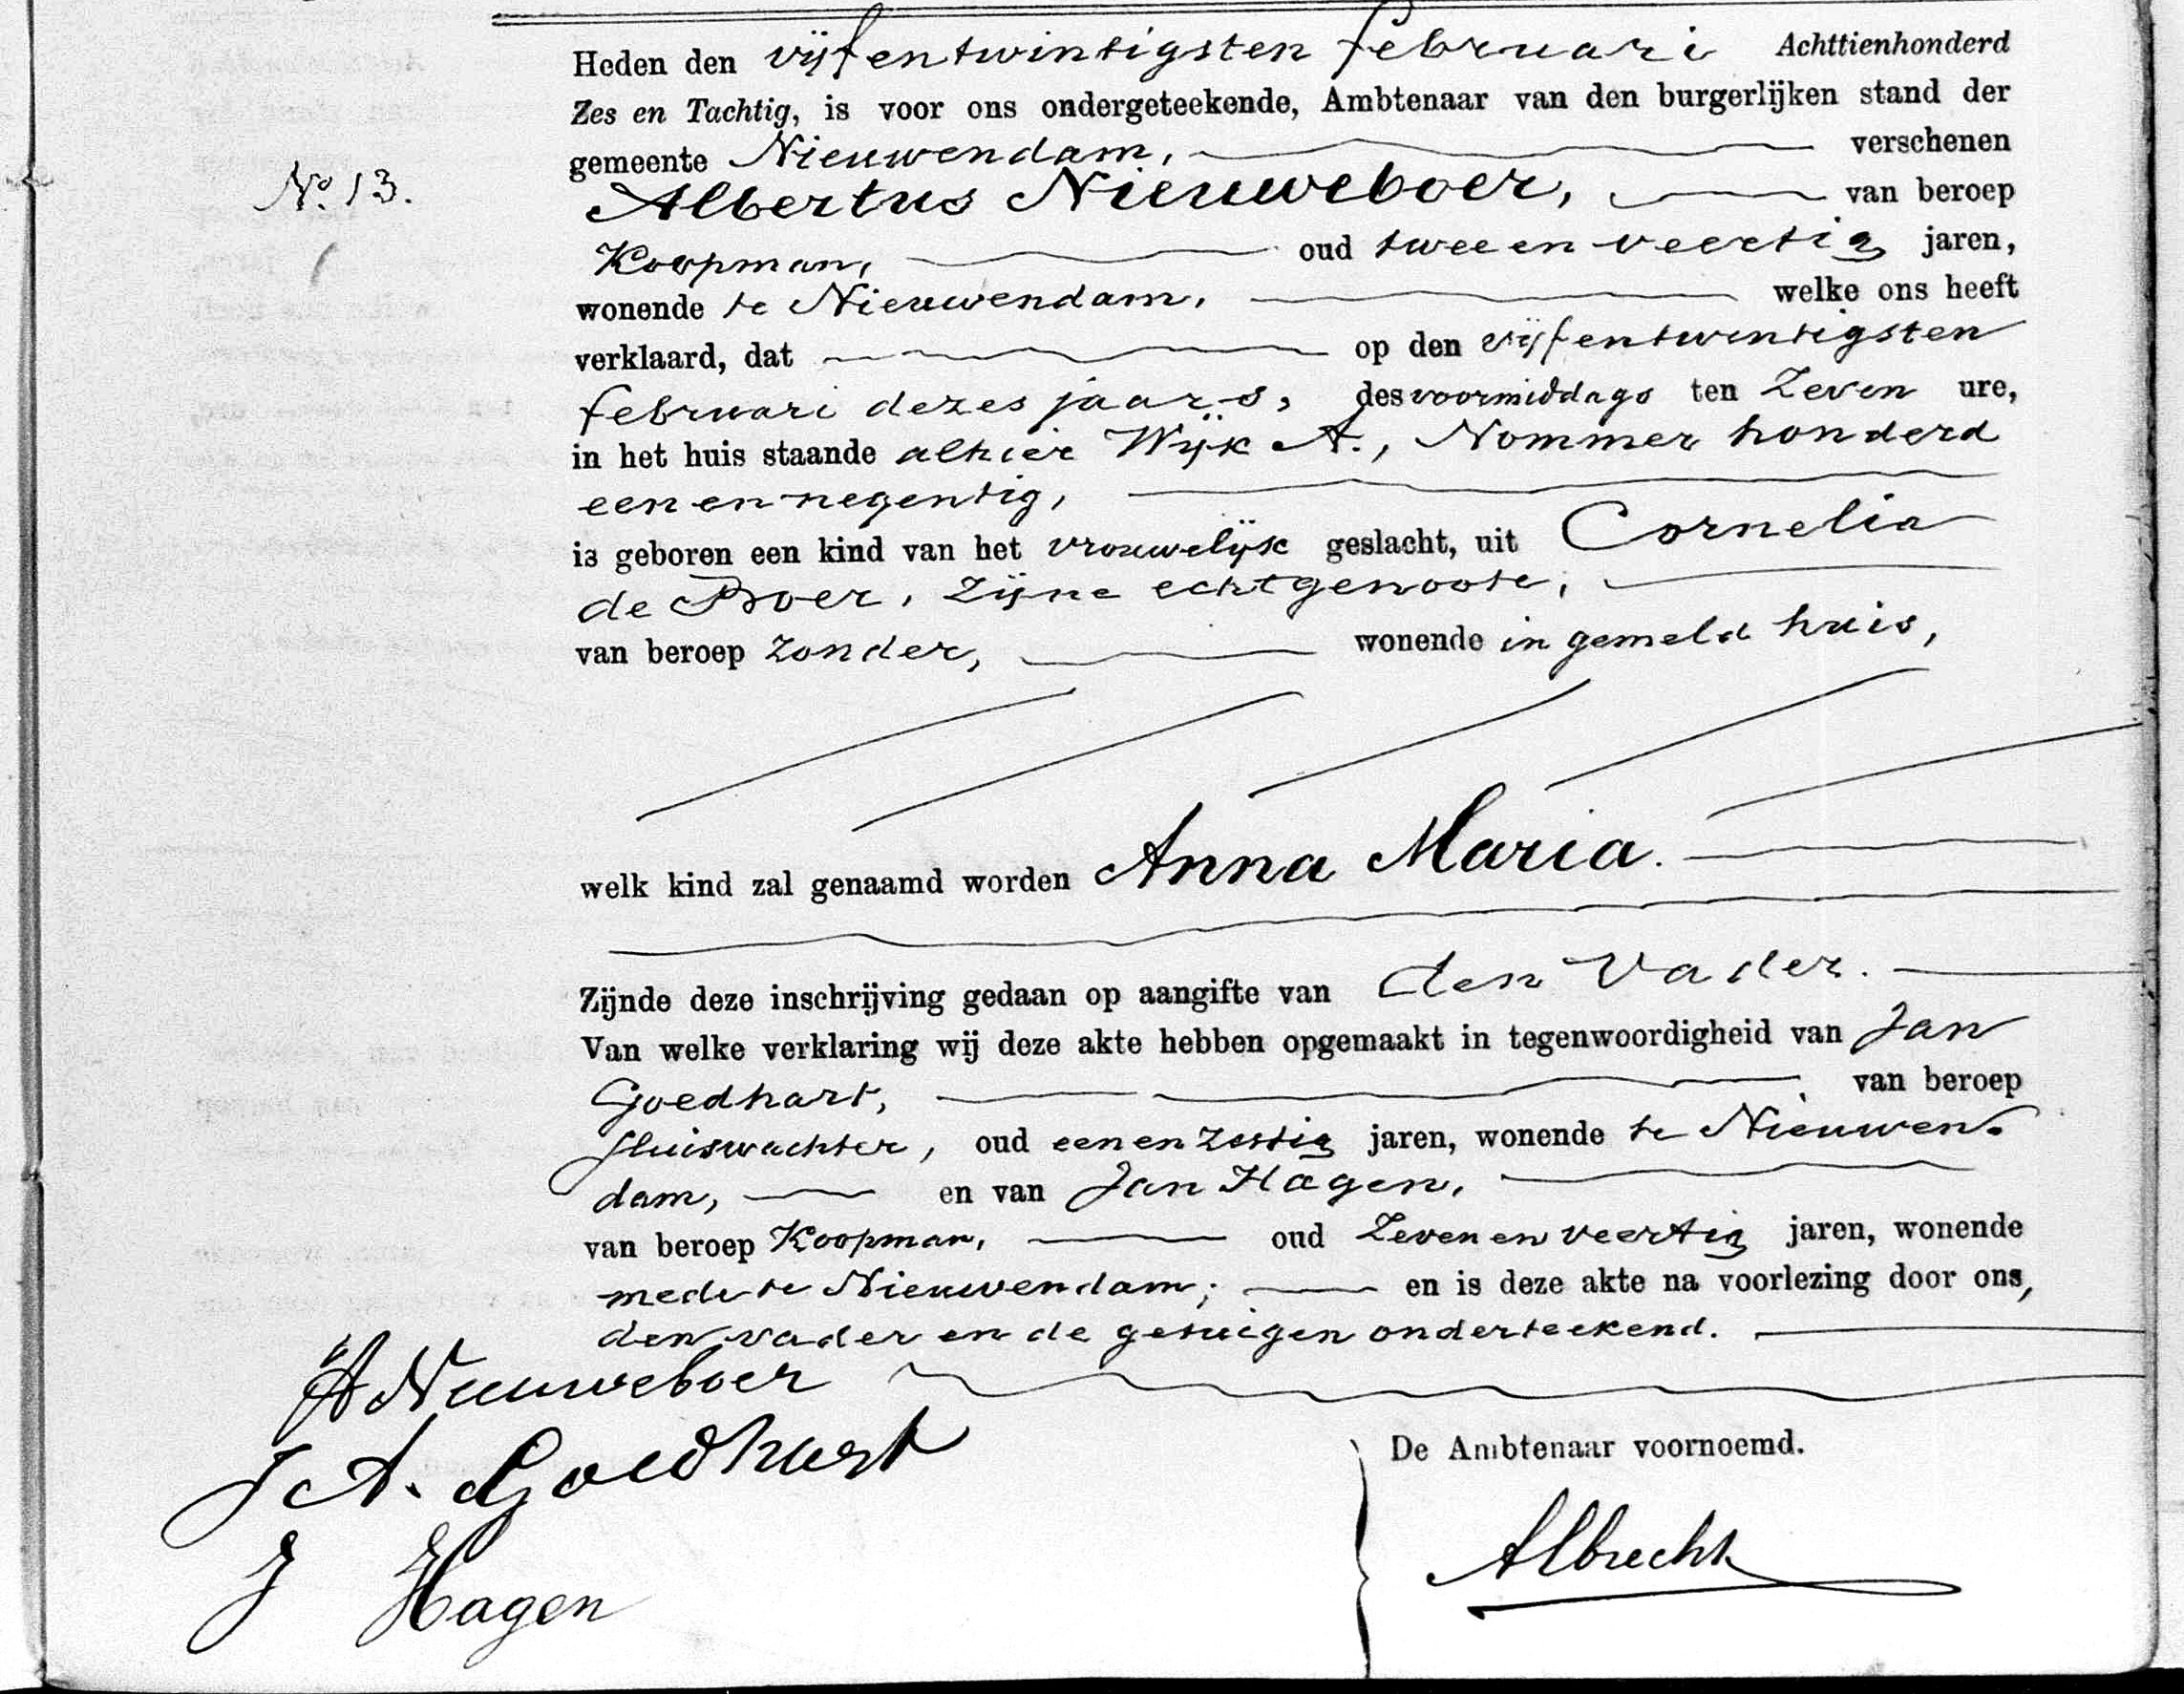 Heden den vijfentwintigsten februari Achttienhonderd
Zes en Tachtig, is voor ons ondergeteekende, Ambtenaar van den burgerlijken stand der
gemeente Nieuwendam, verschenen
No 13.
Albertus Nieuweboer, van beroep
Koopman, oud twee en veertig jaren,
wonende te Nieuwendam, welke ons heeft
verklaard, dat op den vijfentwintigsten
februari dezes jaars, des voormiddags ten Zeven ure,
in het huis staande alhier Wijk A., Nommer honderd
een en negentig,
is geboren een kind van het vrouwelijk geslacht, uit Cornelia
de Boer, Zijne echtgenoote,
van beroep zonder, wonende in gemeld huis,
welk kind zal genaamd worden Anna Maria.
Zijnde deze inschrijving gedaan op aangifte van den Vader.
Van welke verklaring wij deze akte hebben opgemaakt in tegenwoordigheid van Jan
Goedhart, van beroep
Sluiswachter, oud een en Zestig jaren, wonende te Nieuwen-
dam, en van Jan Hagen,
van beroep Koopman, oud Zeven en veertig jaren, wonende
mede te Nieuwendam; en is deze akte na voorlezing door ons,
den vader en de getuigen onderteekend.
A Nieuweboer
J A. Goedhart
De Ambtenaar voornoemd.
J Hagen
Albrecht